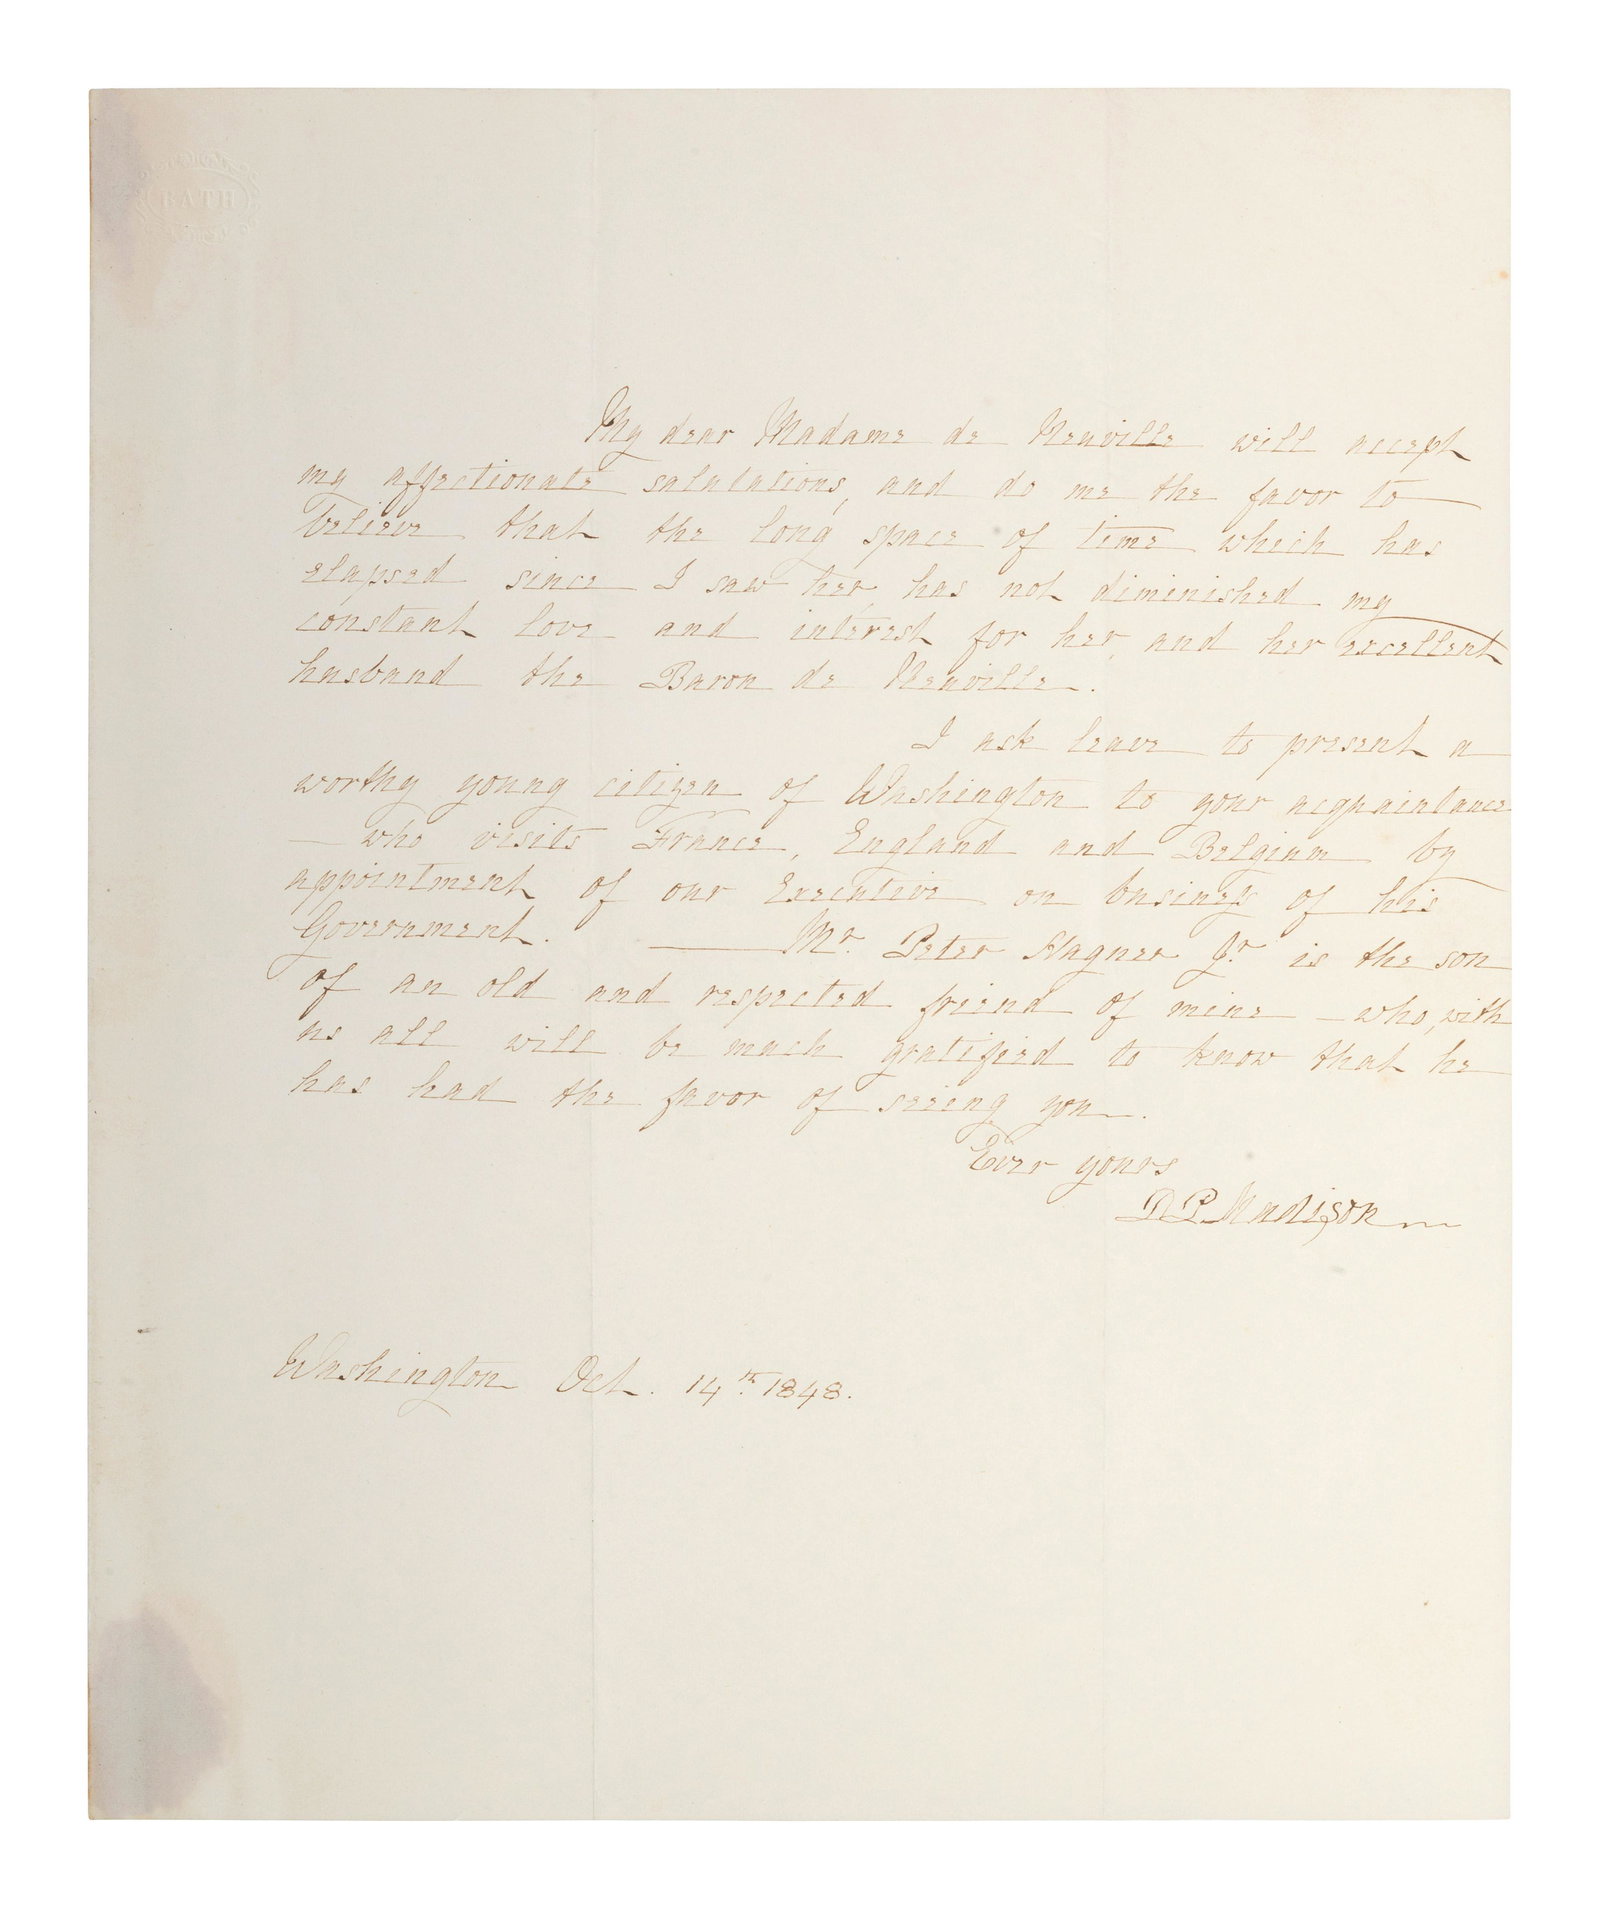 BATH
My dear Madame de Neuville will accept
my affectionate salutations, and do me the favor to
believe that the long space of time which has
elapsed since I saw her has not diminished my
constant love and interest for her, and her excellent
husband the Baron de Neuville.
I ask leave to present a
worthy young citizen of Washington to your acquaintance
— who visits France, England and Belgium by
appointment of our Executive on business of his
Government. — Mr. Peter Hagner Jr. is the son
of an old and respected friend of mine — who, with
us all will be much gratified to know that he
has had the favor of seeing you.
Ever yours
D. P. Madison
Washington Oct. 14th 1848.